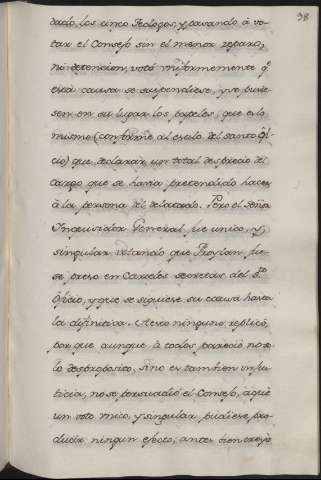 98
dado, los cinco Teologos, y pasando à vo-
tar el Consejo sin el menor reparo,
ni detencion, votó uniformemente q.e
esta causa se suspendiese, y se pusie-
sen en su lugar los papeles, que es lo
mismo (conforme al estilo del santo Ofi
cio) que declarar un total desprecio del
cargo que se havia pretendido hacer
à la persona del delatado. Pero el señor
Inquisidor General fue unico, y
singular votando que Froylan fue-
se preso en Carceles secretas del S.to
Oficio, y que se siguiese su causa hasta
la difinitiva. A esto ninguno replicò,
por que aunque à todos pareciò no so-
lo desproposito, sino es tambien injus
ticia, no se persuadiò el Consejo, à que
un voto unico, y singular pudiese pro-
ducir ningun efecto; antes bien creyo